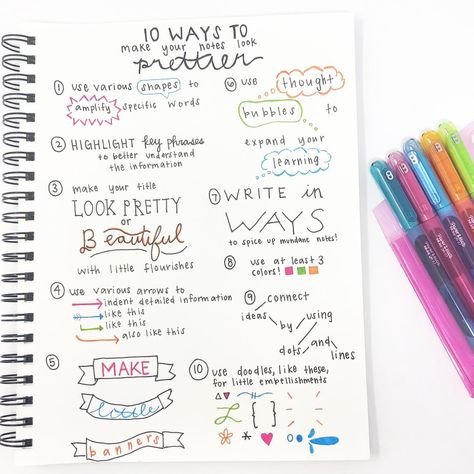 10 WAYS TO
make your notes look
prettier
① use various shapes to
amplify specific words
② HIGHLIGHT key phrases
to better understand
the information
③ make your title
LOOK PRETTY
or
Beautiful
with little flourishes
④ use various arrows to
indent detailed information
like this
like this
also like this
⑤
MAKE
little
banners
⑥ use thought
bubbles to
expand your
learning
⑦ WRITE in
WAYS
to spice up mundane notes!
⑧ use at least 3
colors!
⑨ connect
ideas by using
dots and lines
⑩ use doodles, like these,
for little embellishments